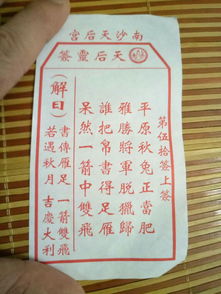 南沙天后宮
天后靈簽
第伍拾簽上簽
平原秋兔正當肥
雅勝將軍脱獵歸
誰把帛書得足雁
呆然一箭中雙飛
(解曰)
書傳雁足 一箭雙飛
若遇秋月 吉慶大利